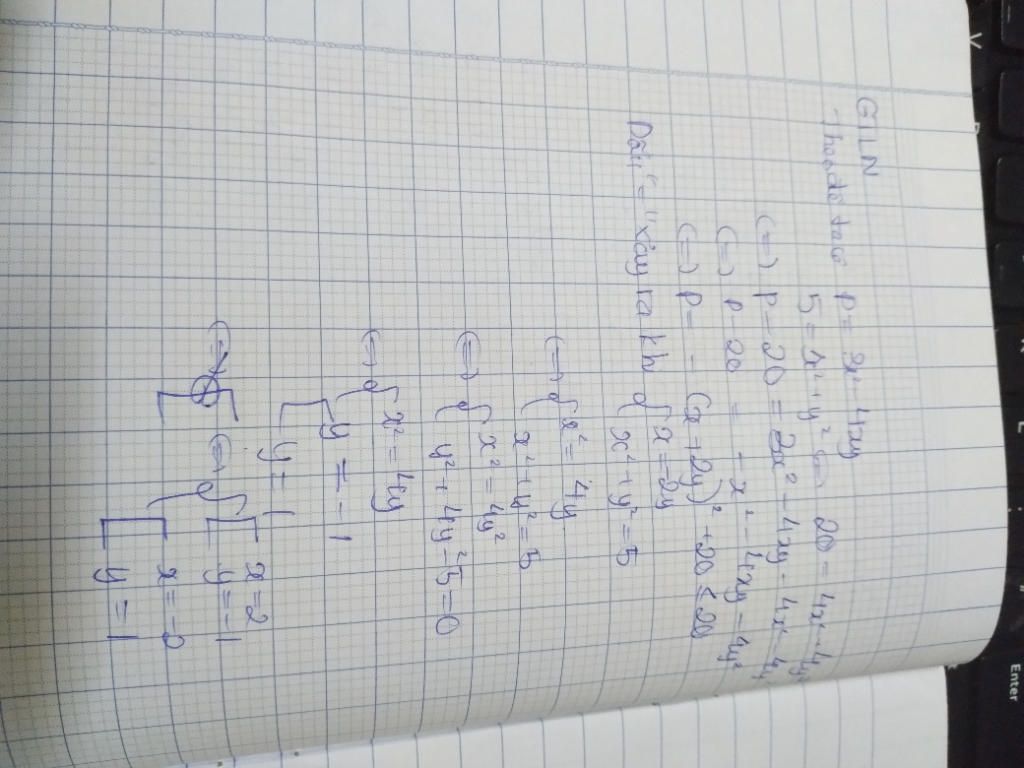 GTLN
Theo đề ta có P = 3x² - 4xy
5 = x² + y² 20 = 4x² + 4y²
(=) P - 20 = 3x² - 4xy - 4x² - 4y²
(=) P - 20 = - x² - 4xy - 4y²
(=) P = - (x + 2y)² + 20 ≤ 20
Dấu "=" xảy ra kh { x = -2y
x² + y² = 5
(=) { x² = 4y
x² + y² = 5
(=) { x² = 4y²
y² + 4y² - 5 = 0
(=) { x² = 4y
[ y = -1
y = 1
(=) { [ x = 2
y = -1
[ x = -2
y = 1
Enter